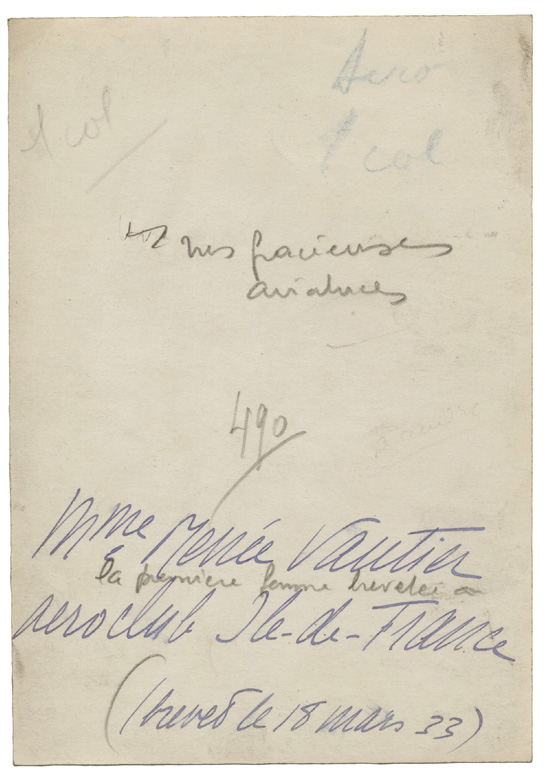 Aero
1 col
1 col
nos gracieuses
aviatrices
490
Mme Renée Vautier
la première femme brevetée
aeroclub Ile-de-France
(brevet le 18 mars 33)